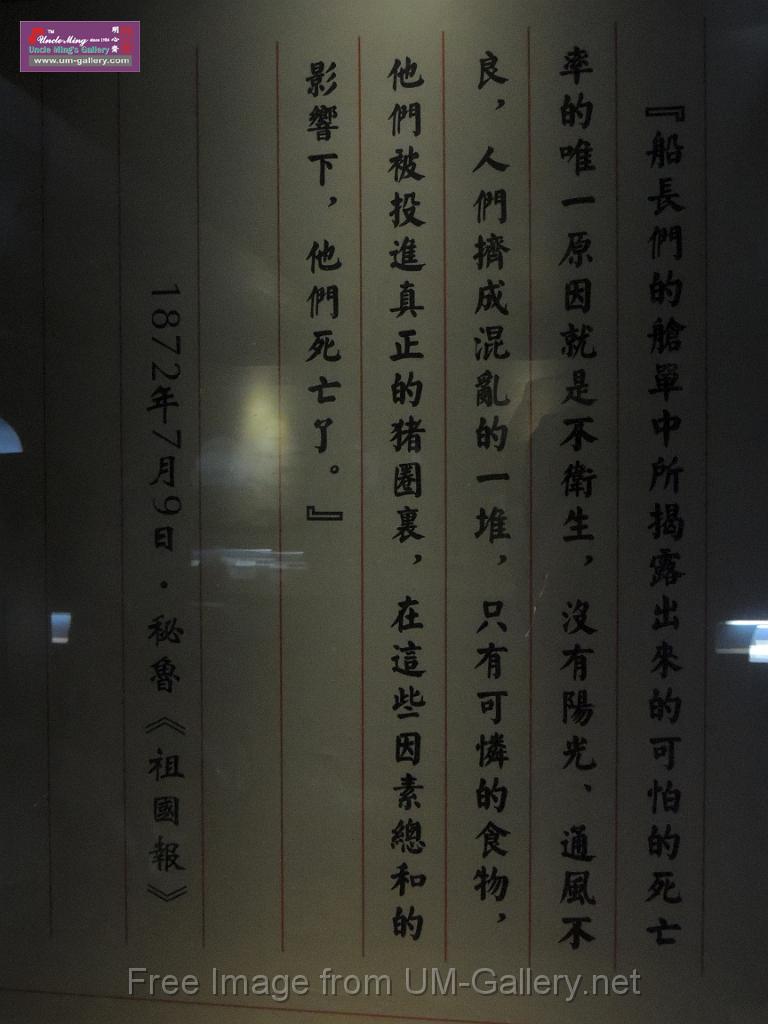 『船長們的艙單中所揭露出來的可怕的死亡
率的唯一原因就是不衛生，沒有陽光、通風不
良，人們擠成混亂的一堆，只有可憐的食物，
他們被投進真正的猪圈裏，在這些因素總和的
影響下，他們死亡了。』
1872年7月9日．秘魯《祖國報》
TM
Uncle Ming since 1986
Uncle Ming's Gallery
www.um-gallery.com
明心齋
Free Image from UM-Gallery.net